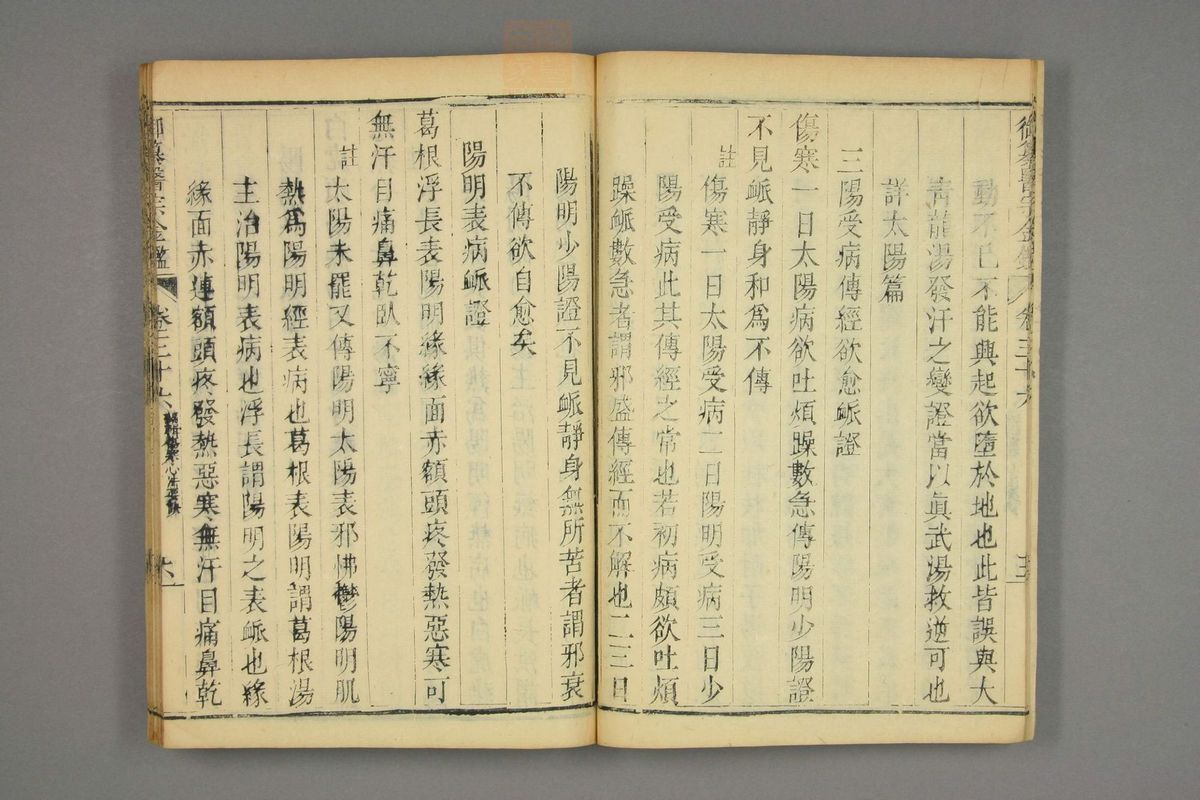 御纂醫宗金鑑 卷三十六
動不已不能興起欲墮於地也此皆誤與大
靑龍湯發汗之變證當以眞武湯救逆可也
詳太陽篇
三陽受病傳經欲愈脈證
傷寒一日太陽病欲吐煩躁數急傳陽明少陽證
不見脈靜身和爲不傳
註傷寒一日太陽受病二日陽明受病三日少
陽受病此其傳經之常也若初病頗欲吐煩
躁脈數急者謂邪盛傳經而不解也二三日
陽明少陽證不見脈靜身無所苦者謂邪衰
不傳欲自愈矣
陽明表病脈證
葛根浮長表陽明緣緣面赤額頭疼發熱惡寒可
無汗目痛鼻乾臥不寧
註太陽未罷又傳陽明太陽表邪怫鬱陽明肌
熱爲陽明經表病也葛根表陽明謂葛根湯
主治陽明表病也浮長謂陽明之表脈也緣
緣面赤連額頭疼發熱惡寒無汗目痛鼻乾
御纂醫宗金鑑 卷三十六 六